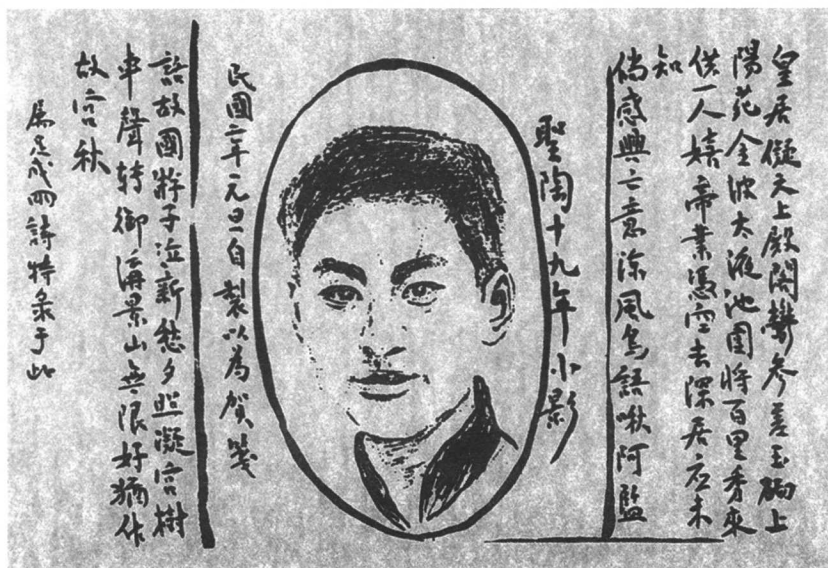 皇居儗天上殿閣鬱參差玉砌上
陽花金波太液池將百里秀來
供一人嬉帝業憑空去深居应未
知
倘感興亡意涼風鳥語啾阿監
聖陶十九年小影
民國二年元旦自製以為賀箋
話故國游子泣新愁夕照凝宮樹
車聲轉御溝景山無限好猶作
故宮秋
成四詩特彔于此